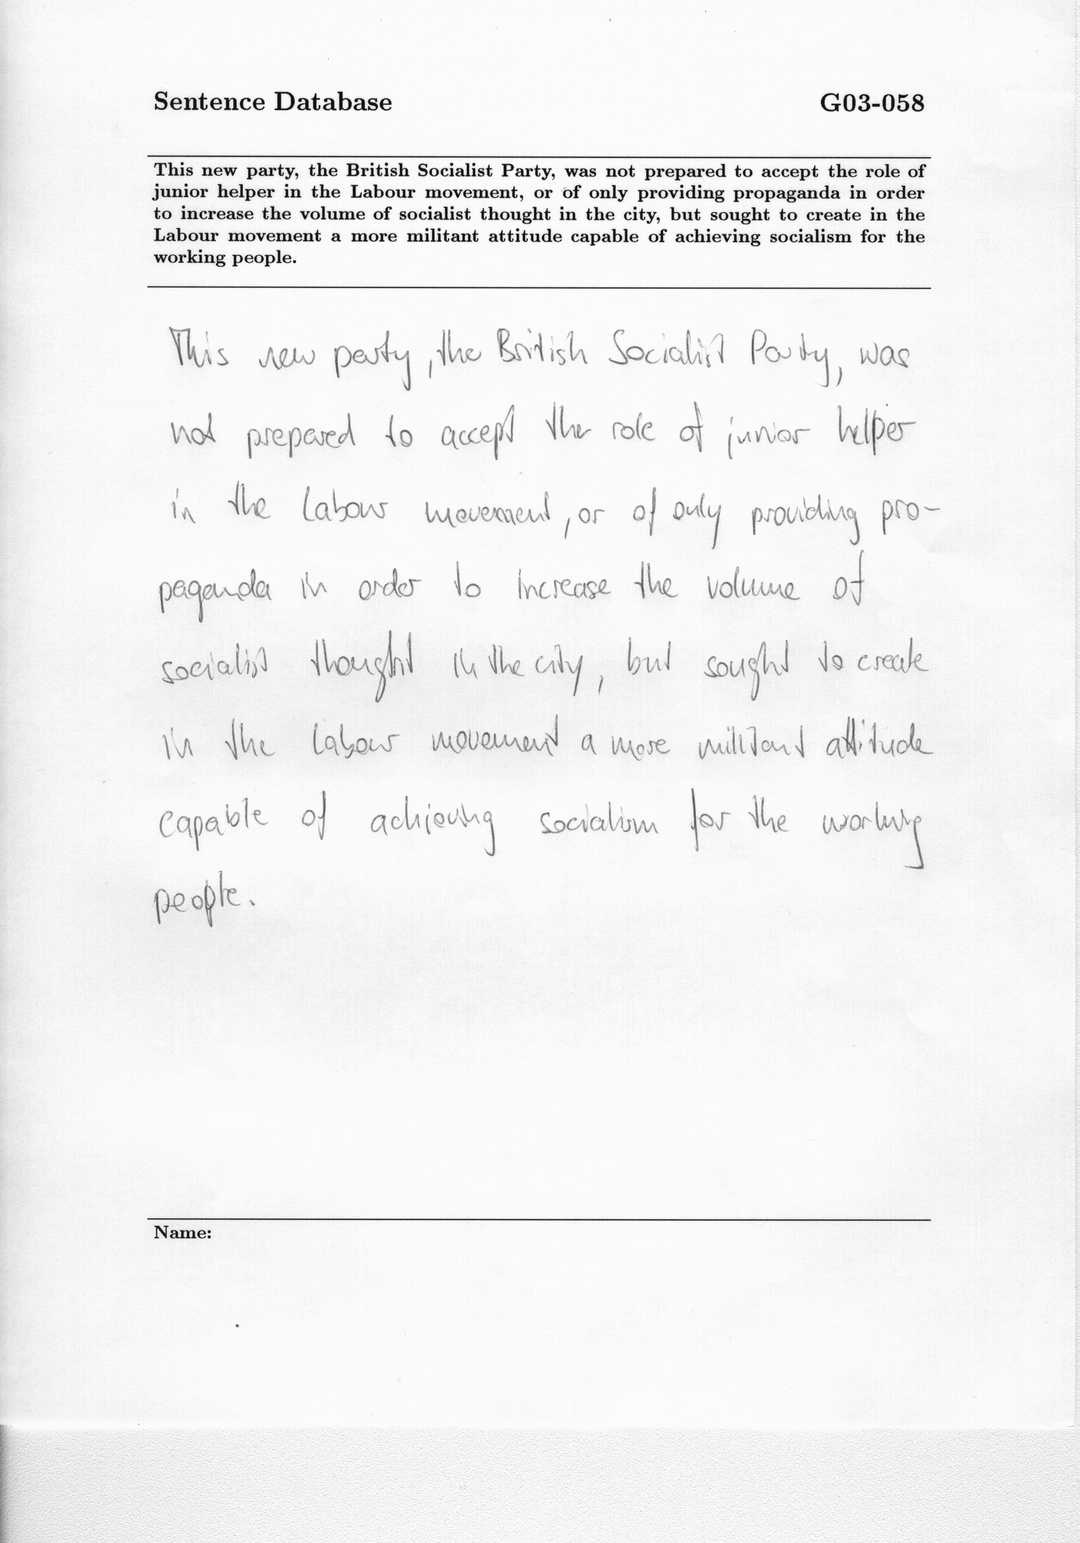 Sentence Database
G03-058
This new party, the British Socialist Party, was not prepared to accept the role of
junior helper in the Labour movement, or of only providing propaganda in order
to increase the volume of socialist thought in the city, but sought to create in the
Labour movement a more militant attitude capable of achieving socialism for the
working people.
This new party, the British Socialist Party, was
not prepared to accept the role of junior helper
in the Labour movement, or of only providing pro-
paganda in order to increase the volume of
socialist thought in the city, but sought to create
in the Labour movement a more militant attitude
capable of achieving socialism for the working
people.
Name: